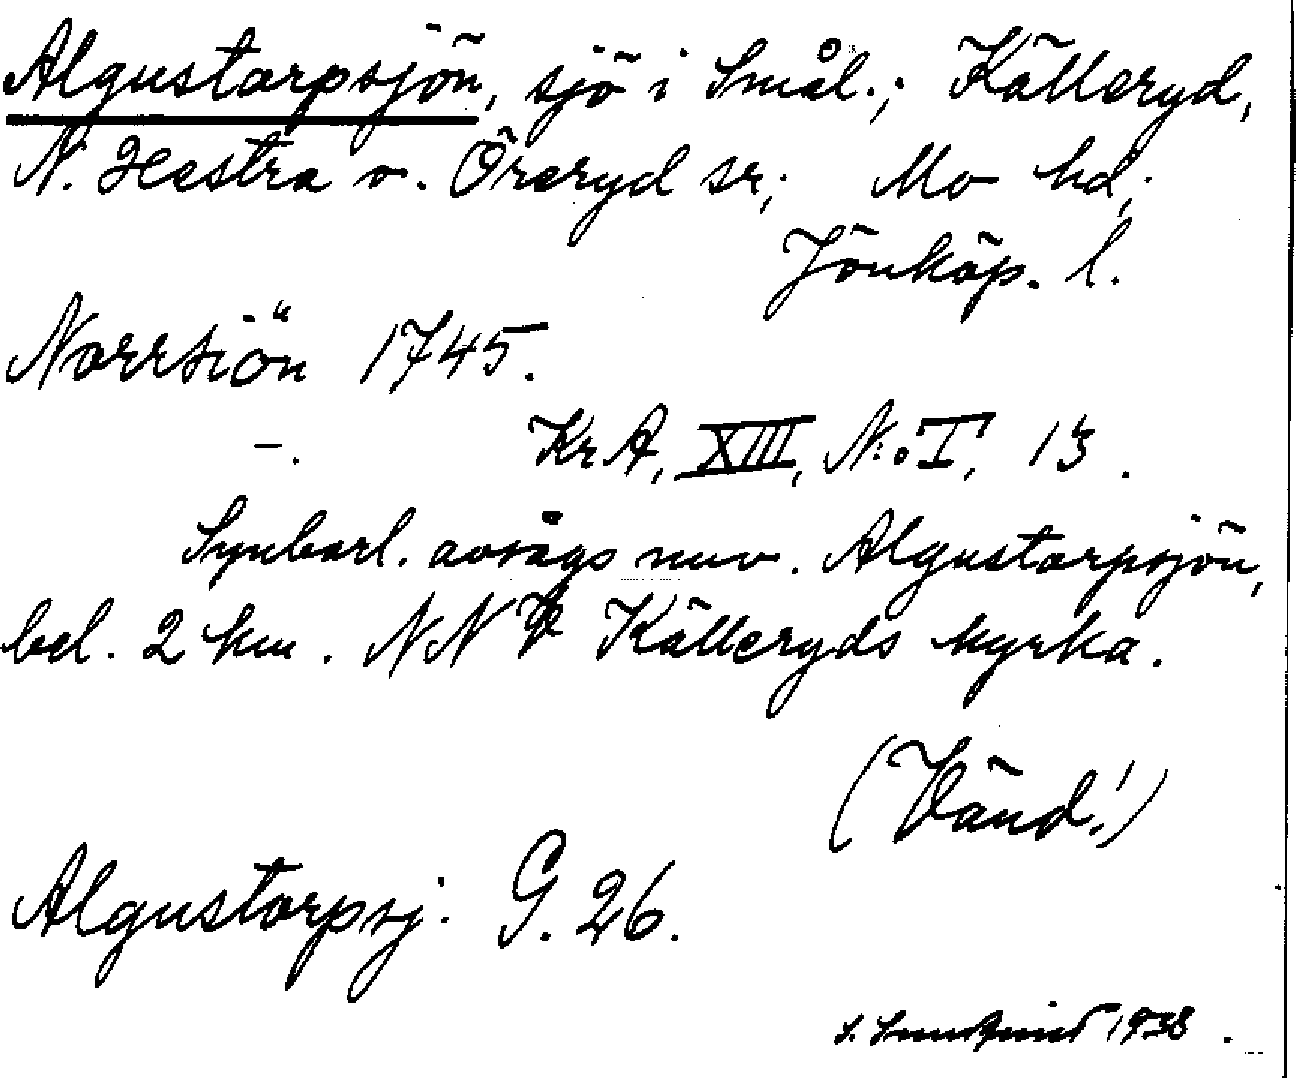 Algustorpsjön, sjö i Smål.; Källeryd,
N. Hestra o. Öreryd sr; Mo hd;
Jönköp. l.
Norrsiön 1745.
–. KrA, XIII, N:o I, 13.
Synbarl. avsågs nuv. Algustorpsjön,
bel. 2 km. NNV Källeryds kyrka.
(Vänd!)
Algustorpsj. G. 26.
S. 1938.